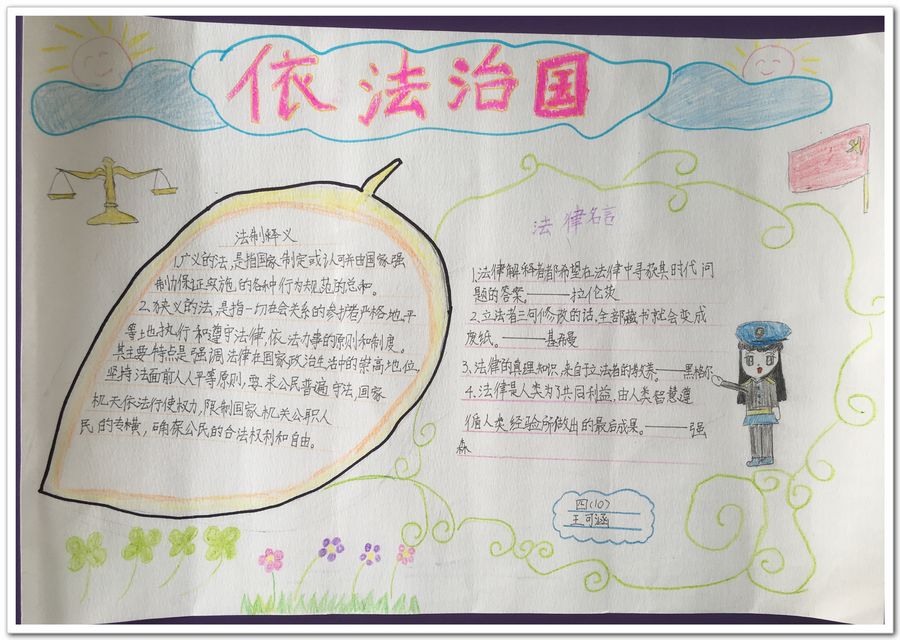 依法治国
法制释义
1.广义的法,是指国家制定或认可并由国家强
制力保证实施的各种行为规范的总和。
2.狭义的法,是指一切社会关系的参护者严格地、平
等上也执行和遵守法律,依法办事的原则和制度。
其主要特点是强调法律在国家政治生活中的崇高地位,
坚持法面前人人平等原则,要求公民普遍守法,国家
机关依法行使权力,限制国家机关公职人
民的专横,确保公民的合法权利和自由。
法律名言
1.法律解释者都希望在法律中寻获其时代问
题的答案。——拉伦茨
2.立法者三句修改的话,全部藏书就会变成
废纸。——基希曼
3.法律的真理知识,来自立法者的教养。——黑格尔
4.法律是人类为了共同利益,由人类智慧遵
循人类经验所做出的最后成果。——强
森
四(10)
王可涵